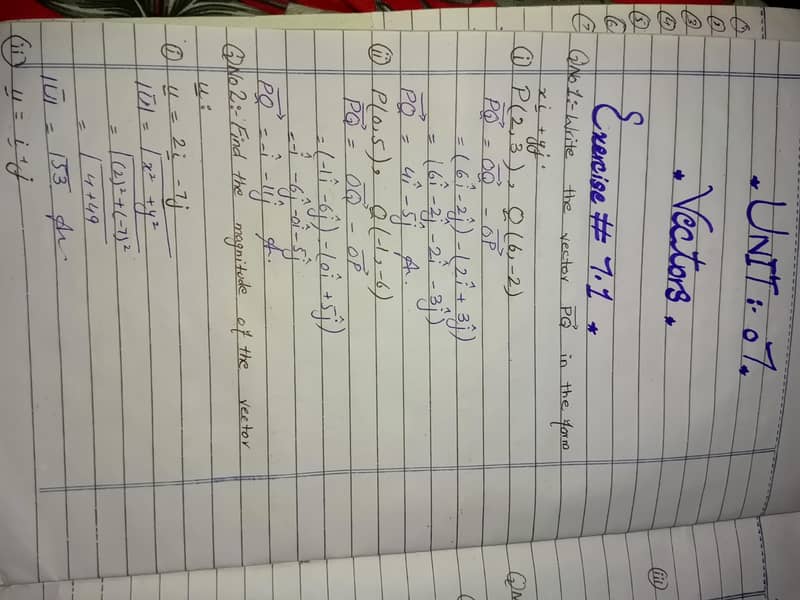 * UNIT: 07 *
* Vectors *
Exercise # 7.1 *
Q No 1:- Write the vector PQ⃗ in the form
xi + yj.
(i) P(2,3), Q(6,-2)
PQ⃗ = OQ⃗ - OP⃗
= (6î - 2ĵ) - (2î + 3ĵ)
= (6î - 2ĵ - 2î - 3ĵ)
PQ⃗ = 4î - 5ĵ
(ii) P(0,5), Q(-1,-6)
PQ⃗ = OQ⃗ - OP⃗
= (-1î - 6ĵ) - (0î + 5ĵ)
= -î - 6ĵ - 0î - 5ĵ
PQ⃗ = -î - 11ĵ
Q No 2:- Find the magnitude of the vector
u:
(i) u = 2i - 7j
|u| = √x² + y²
= √(2)² + (-7)²
= √4 + 49
|u| = √53
(ii) u = i + j
(iii)